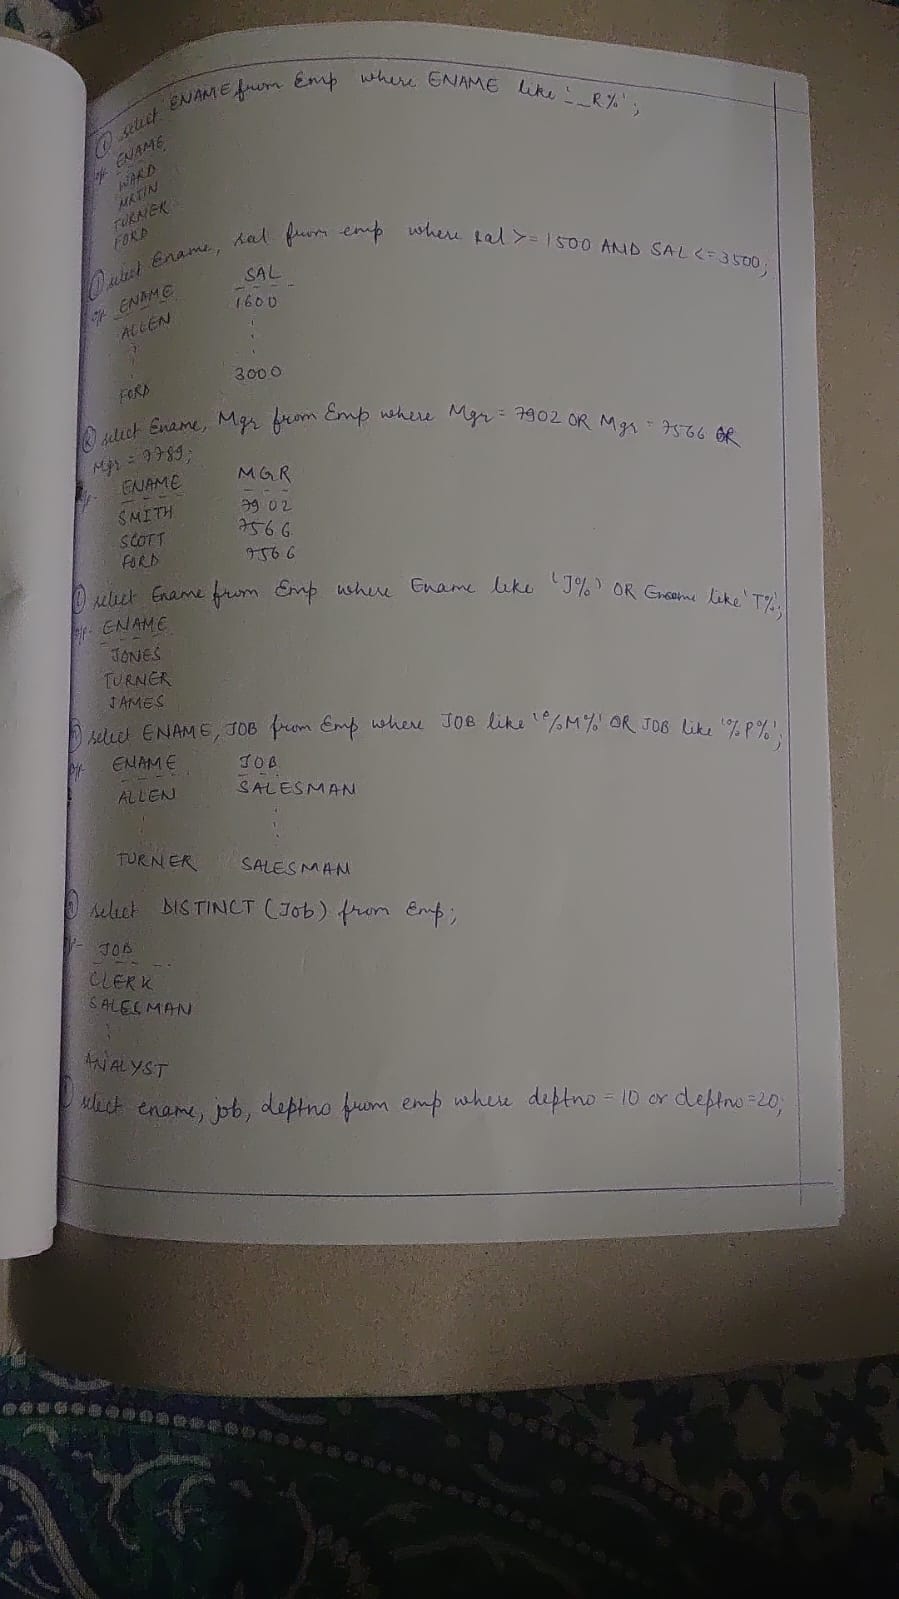 ① select ENAME from Emp where ENAME like '__R%';
o/p- ENAME
WARD
MRTIN
TURNER
FORD
select Ename, sal from emp where sal >= 1500 AND SAL <= 3500;
o/p- ENAME SAL
ALLEN 1600
FORD 3000
Ⓚ select Ename, Mgr from Emp where Mgr = 7902 OR Mgr = 7566 OR
Mgr = 7789;
ENAME MGR
SMITH 7902
SCOTT 7566
FORD 7566
select Ename from Emp where Ename like 'J%' OR Ename like 'T%';
o/p- ENAME
JONES
TURNER
JAMES
select ENAME, JOB from Emp where JOB like '%M%' OR JOB like '%P%';
o/p- ENAME JOB
ALLEN SALESMAN
TURNER SALESMAN
select DISTINCT (Job) from Emp;
JOB
CLERK
SALESMAN
ANALYST
select ename, job, deptno from emp where deptno = 10 or deptno=20;